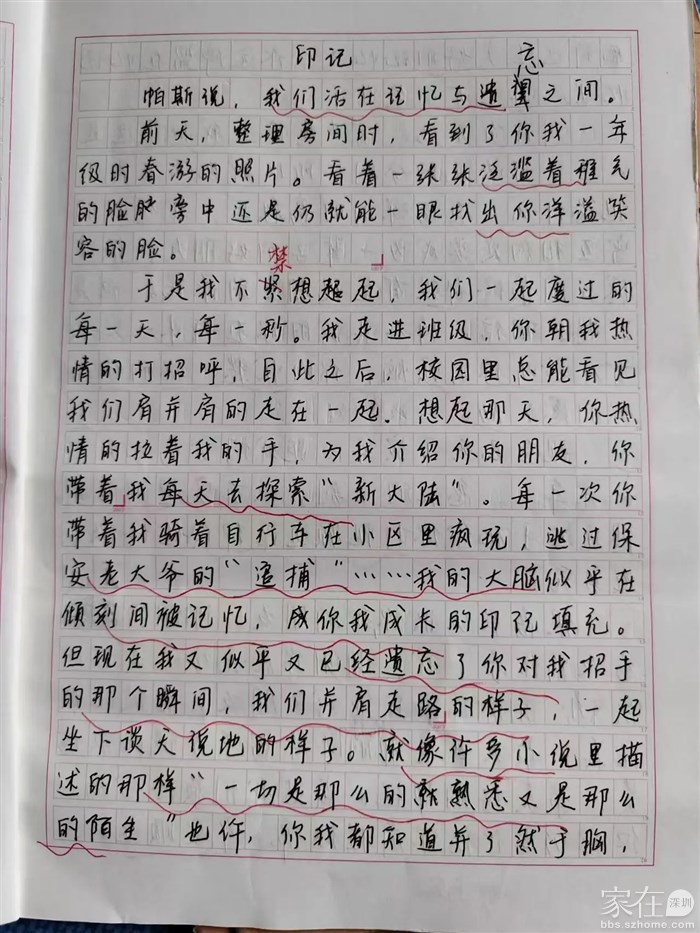 印记
忘
帕斯说，我们活在记忆与遗望之间。
前天，整理房间时，看到了你我一年
级时春游的照片。看着一张张泛滥着稚气
的脸庞中还是仍就能一眼找出你洋溢笑
容的脸。
禁
于是我不紧想起起，我们一起度过的
每一天，每一秒。我走进班级，你朝我热
情的打招呼，自此之后，校园里总能看见
我们肩并肩的走在一起．想起那天，你热
情的拉着我的手，为我介绍你的朋友．你
带着我每天去探索“新大陆”。每一次你
带着我骑着自行车在小区里疯玩，逃过保
安老大爷的“追捕”……我的大脑似乎在
倾刻间被记忆，成你我成长的印记填充。
但现在我又似乎又已经遗忘了你对我招手
的那个瞬间，我们并肩走路的样子，一起
坐下谈天说地的样子。就像许多小说里描
述的那样“一切是那么的熟悉又是那么
的陌生”也许，你我都知道并了然于胸，
家在深圳
bbs.szhome.com